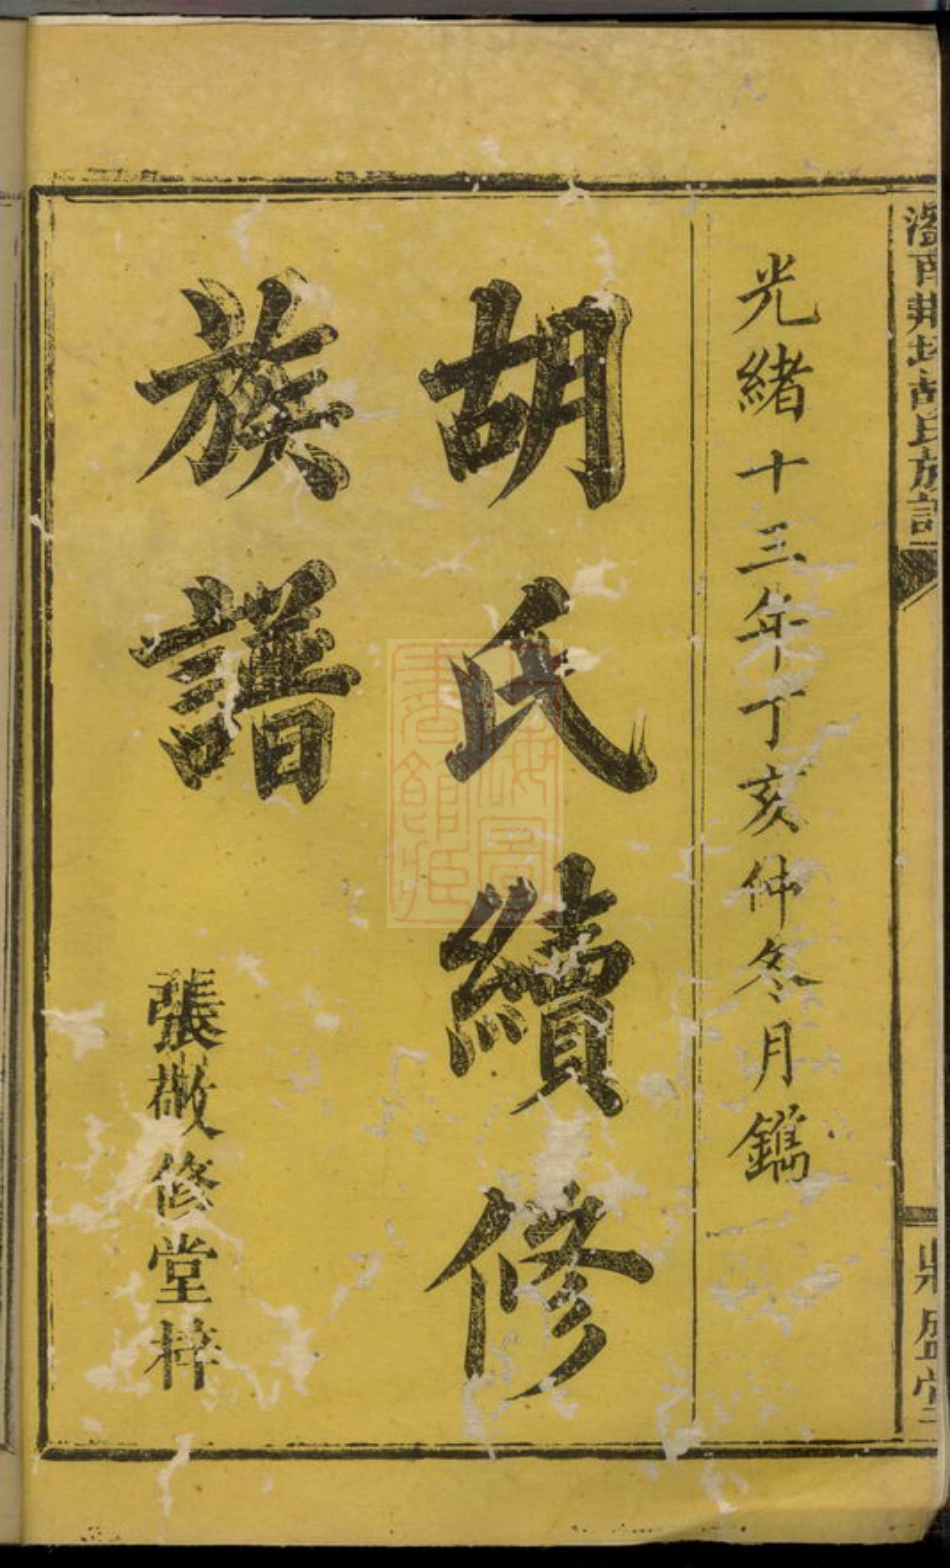 胡氏族譜
光緒十三年丁亥仲冬月鐫
胡氏續修
族譜
張敬修堂梓